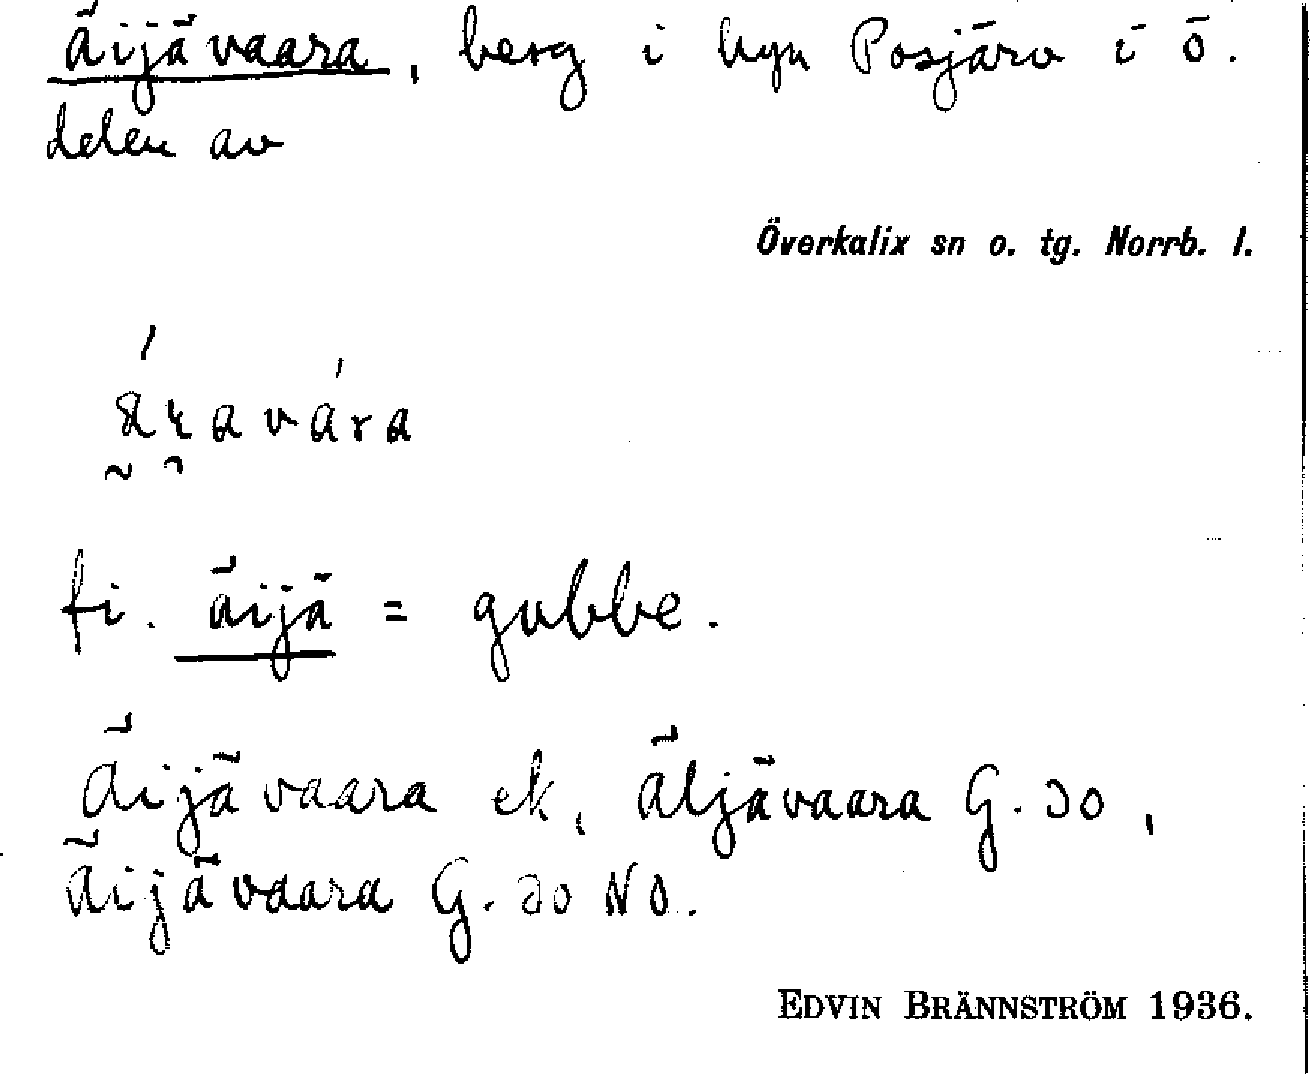 äijävaara, berg i hyn Posjärv i ö.
delen av
Överkalix sn o. tg. Norrb. l.
fi. äijä = gubbe.
Äijävaara ek, Äljävaara G. 30,
Äijävaara G. 30 NO.
EDVIN BRÄNNSTRÖM 1936.